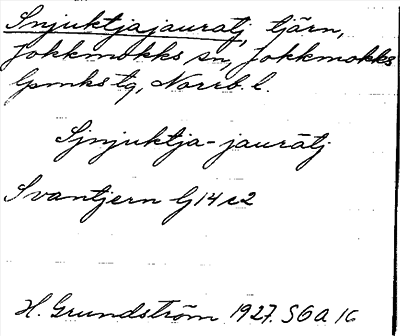 Snjuktjajauratj, tjärn,
Jokkmokks sn, Jokkmokks
lpmkstg, Norrb. l.
Sjnjuktja-jaurātj
Svantjern G14 c2
H. Grundström 1927. S6a 16